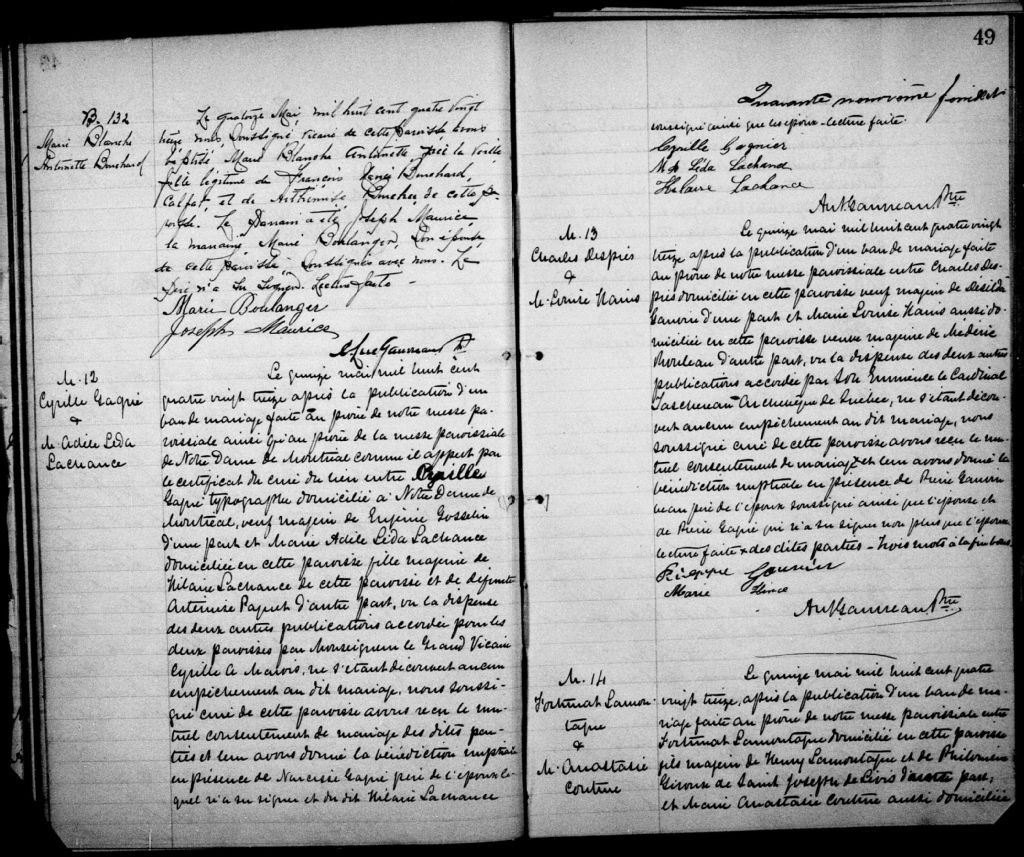 B. 132
Marie Blanche
Antoinette Bouchard
Le quatorze Mai, mil huit cent quatre vingt
treize nous, soussigné vicaire de cette paroisse avons
baptisé Marie Blanche Antoinette, née la veille
fille légitime de François Bouchard,
Calfat, et de Arthémise de cette pa-
roisse. Le Parrain a été Joseph Maurice
la marraine Marie Boulanger, son épouse,
de cette paroisse, soussignés avec nous. Le
père n'a su signer. Lecture faite -
Marie Boulanger
Joseph Maurice
Ptre
M. 12
Cyrille Gagné
&
M. Adèle Léda
Lachance
Le quinze mai mil huit cent
quatre vingt treize après la publication d'un
ban de mariage faite au prône de notre messe pa-
roissiale ainsi qu'au prône de la messe paroissiale
de Notre Dame de Montréal comme il appert par
le certificat du curé du lieu entre Cyrille
Gagné typographe domicilié à Notre Dame de
Montréal, veuf majeur de Eugénie Gosselin
d'une part et Marie Adèle Léda Lachance
domiciliée en cette paroisse fille majeure de
Hilaire Lachance de cette paroisse et de défunte
Artémise Paquet d'autre part, vu la dispense
des deux autres publications accordée pour les
deux paroisses par Monseigneur le Grand Vicaire
Cyrille A Marois, ne s'étant découvert aucun
empêchement au dit mariage, nous soussi-
gné curé de cette paroisse avons reçu le mu-
tuel consentement de mariage des dites par-
ties et leur avons donné la bénédiction nuptiale
en présence de Narcisse Gagné père de l'époux le-
quel n'a su signer et du dit Hilaire Lachance
49
Quarante neuvième feuillet
soussigné ainsi que les époux - lecture faite
Cyrille Gagnier
Léda Lachance
Hilaire Lachance
Ptre
M. 13
Charles Després
&
M. Louise Hains
Le quinze mai mil huit cent quatre vingt
treize après la publication d'un ban de mariage faite
au prône de notre messe paroissiale entre Charles Des-
près domicilié en cette paroisse veuf majeur de
d'une part et Marie Louise Hains aussi do-
miciliée en cette paroisse veuve majeure de Médéric
d'autre part, vu la dispense des deux autres
publications accordée par Son Eminence le Cardinal
Taschereau Archevêque de Québec, ne s'étant décou-
vert aucun empêchement au dit mariage, nous
soussigné curé de cette paroisse avons reçu le mu-
tuel consentement de mariage et leur avons donné la
bénédiction nuptiale en présence de Pierre
beau père de l'époux soussigné ainsi que l'épouse et
de Pierre Gagné qui n'a su signer non plus que l'époux
lecture faite x des dites parties - trois mots à la fin bons
Marie
Ptre
M. 14
Fortunat Lamon-
tagne
&
M. Anastasie
Couture
Le quinze mai mil huit cent quatre
vingt treize, après la publication d'un ban de ma-
riage faite au prône de notre messe paroissiale entre
Fortunat Lamontagne domicilié en cette paroisse
fils majeur de Henry Lamontagne et de Philomène
Giroux de Saint Joseph de Lévis d'autre part,
et Marie Anastasie Couture aussi domiciliée